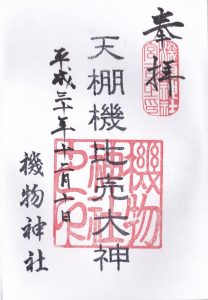 奉拝
天棚機比売大神
平成三十年十二月十日
機物神社
機物
神社